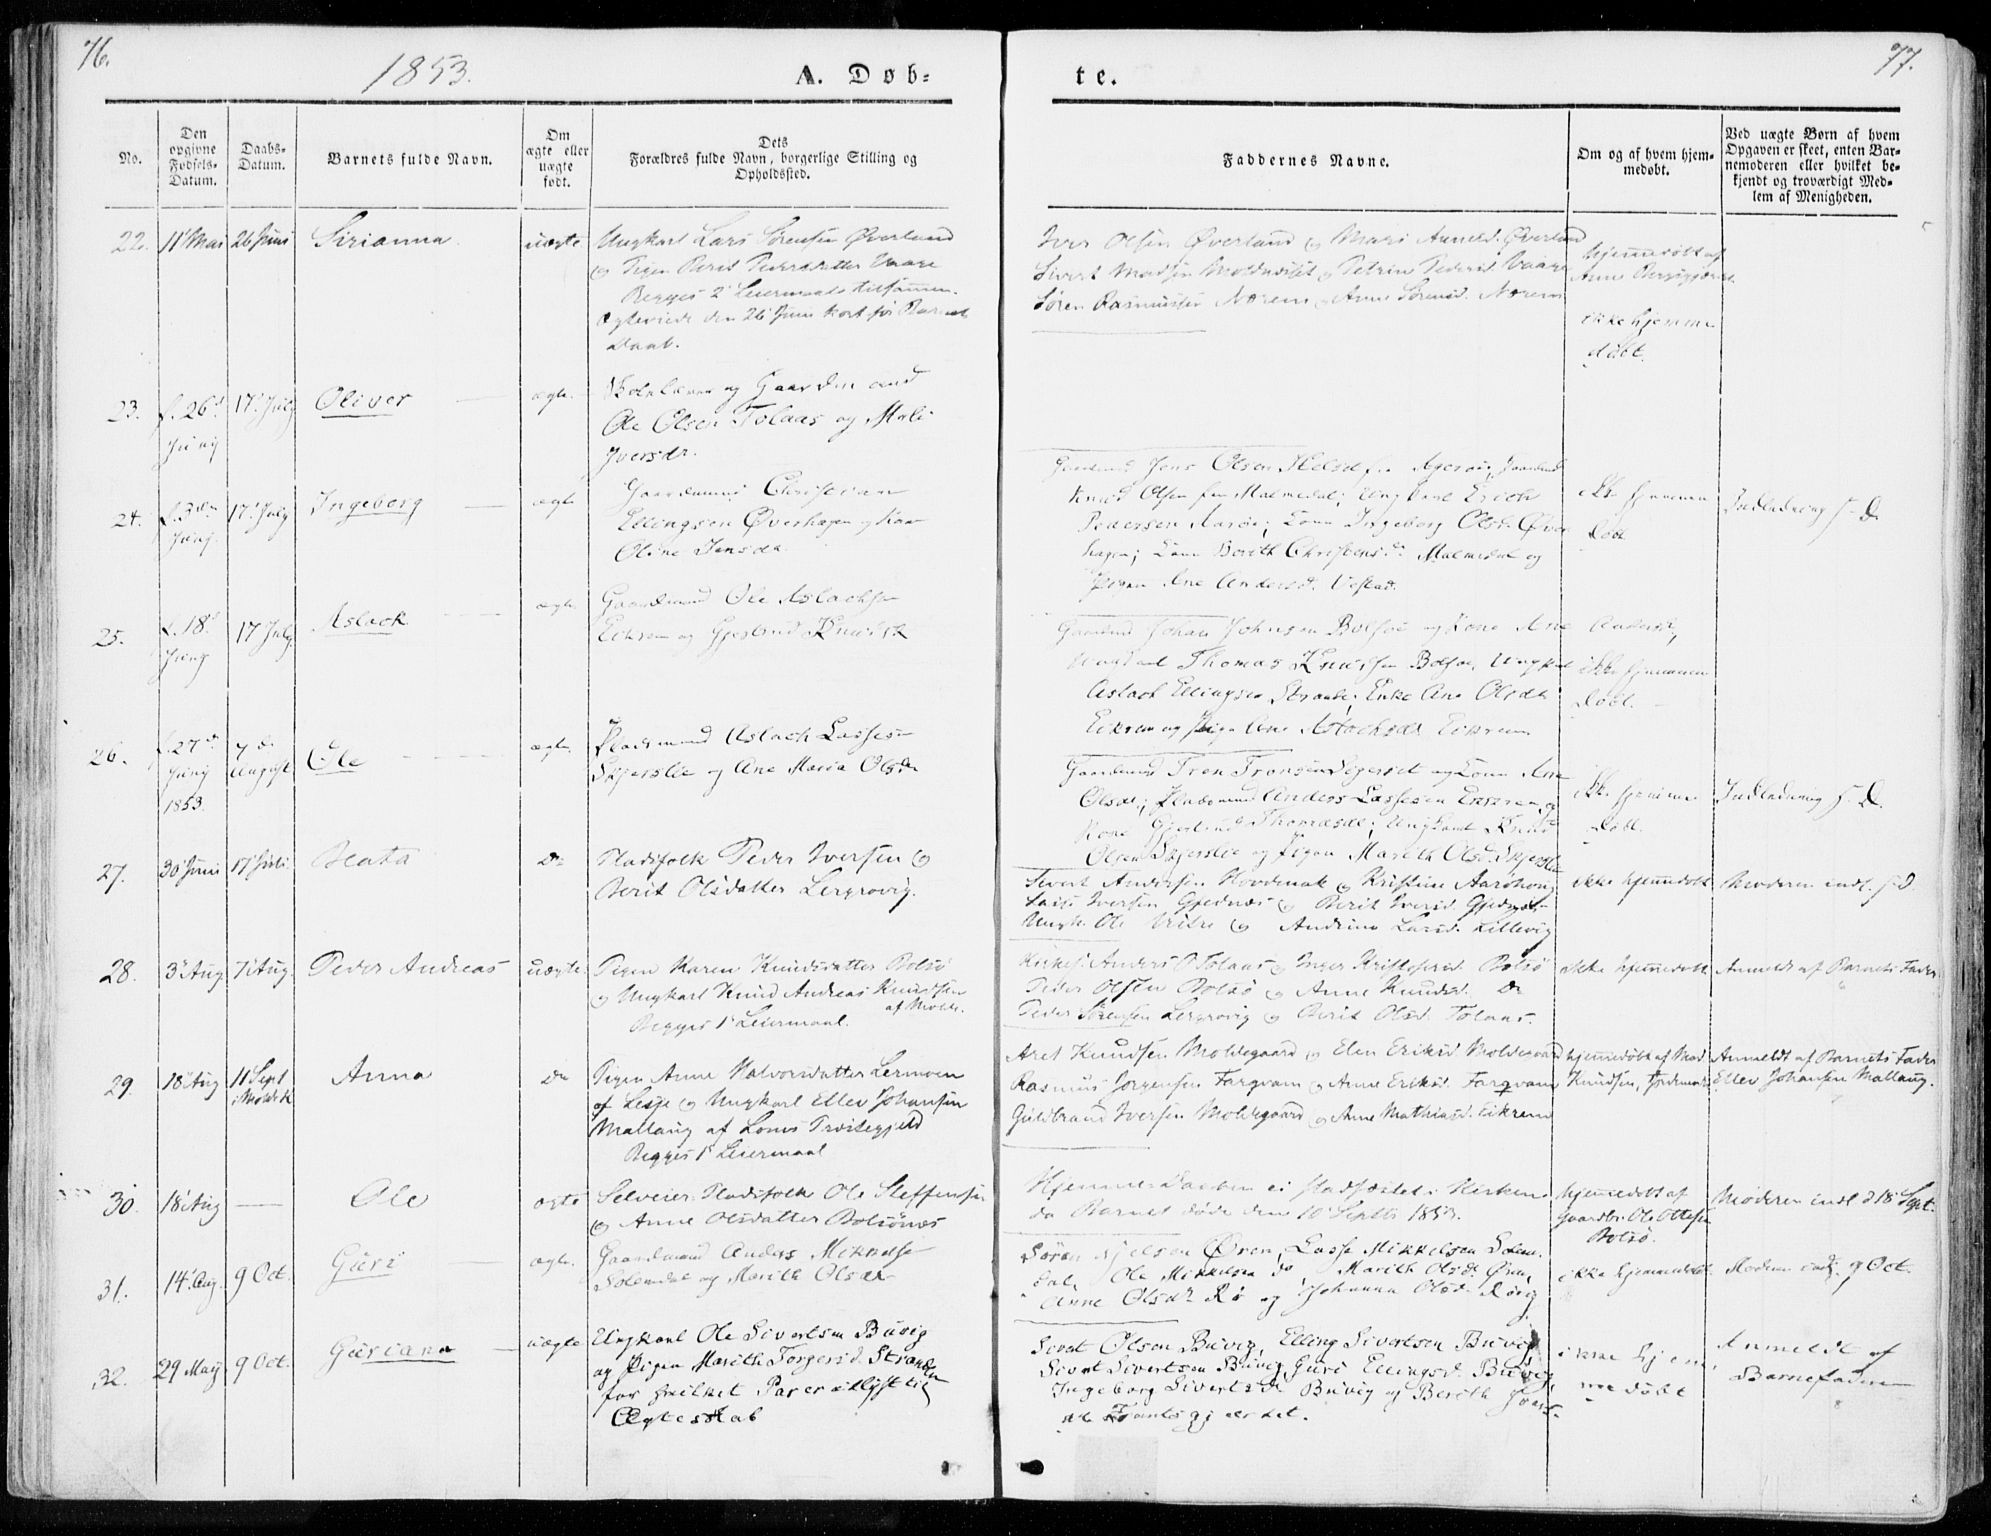 76.
1853.
A. Døb=
te.
77.
No.
Den opgivne Fødsels-Datum.
Daabs-Datum.
Barnets fulde Navn.
Om ægte eller uægte født.
Dets
Forældres fulde Navn, borgerlige Stilling og
Opholdssted.
Faddernes Navne.
Om og af hvem hjem-
medøbt.
Ved uægte Børn af hvem
Opgaven er skeet, enten Bar-
nemoderen eller hvilket be-
kjendt og troværdigt Med-
lem af Menigheden.
22. 11 Mai 26 Juni Sirianna. uægte
Ungkarl Lars Sørensen Øverland
og Pigen Berit Pedersdatter Vaage
Begges 2 Leiermaal tilsammen.
Ægteviede den 26 Juni kort før Barnets
Daab.
Iver Olsen Øverland og Mari Øverland
Sivert Madsen Moldesæter og Petrine Pedersd. Vaage
Søren Rasmussen Norem og Anne Sørensd. Norem
hjemmedøbt af
Anne
23. f. 26d Junij 17 July Oliver ægte.
Skolelærer og Gaardmand
Ole Olsen Tolaas og Mali
Iversdr.
ikke hjemme
døbt.
24. f. 3den Junij. 17 July Ingeborg ægte
Gaardmand Christian
Ellingsen Øverhagen og Kone
Oline Jensdr.
Gaardmand Jens Olsen
Knud Olsen Malmedal; Ungkarl Erich
Pedersen Aarøe; Kone Ingeborg Olsdr. Øver
hagen; Kone Berith Christensdr. Malmedal og
Pigen Ane Andersd. Vestad.
ikke hjemme
døbt
Indledning s. D.
25. f. 18d Junij 17 July Aslack ægte
Gaardmand Ole Aslachsen
Eikrem og Gjertrud Knudsdr
Gaardmand Johan Johnsen Bolsøe og Kone Ane
Ungkarl Thomas Knudsen Bolsøe, Ungkarl
Aslach Ellingsen Strande; Enke Ane Olsdr
Eikrem og Pige Ane Aslachsdr Eikrem
Andersdr,
ikke hjemme
døbt.
26. f. 27de Junij 1853. 7de August Ole ægte
Pladsmand Aslach Lassesen
Skjerslie og Ane Maria Olsdr
Gaardmand Tron Tronsen og Kone Ane
Olsdr; Pladsmand Anders Lassesen Eikrem og
Kone Gjertrud Thomasdr; Ungkarl Knud
Olsen Skjerslie og Pigen Marith Olsd. Skjerslie
ikke hjemme
døbt.
Indledning s. D.
27. 30 Juni 17 Juli Beata Do
Pladsfolk Peder Iversen og
Berit Olsdatter Lergrovig.
Sivert Andersen Hovdenak og Kristine Aarøhoug
Lars Iversen Gjednæs og Berit Iversd. Gjednæs
Ungk. Ole og Andrine Larsd. Lillevig
ikke hjemmedøbt
Moderen indl. s. D.
28. 3 Aug 7 Aug. Peder Andreas uægte
Pigen Karen Knudsdatter Bolsø
og Ungkarl Knud Andreas Knudsen
af Molde.
Begges 1 Leiermaal.
Kirkes. Anders O Tolaas og Inger Kristofersd. Bolsø
Peder Olsen Bolsø og Anne Knudsd. Do
Peder Sørensen Lergrovig og Berit Olsd. Tolaas.
ikke hjemmedøbt
Anmeldt af Barnets Fader
29. 18 Aug 11 Sept i Molde K Anna Do
Pigen Anne Halvorsdatter Lermoen
af Lesje og Ungkarl Ellev Johansen
Mallaug af Loms Præstegjeld
Begges 1 Leiermaal
Aret Knudsen Moldegaard og Elen Eriksd Moldegaard
Rasmus Jørgensen Fargvam og Anne Eriksd. Fargvam
Guldbrand Iversen Moldegaard og Anne Mathiasd. Eikrem
hjemmedøbt af
Knudsen,
Anmeldt af Barnets Fader
Ellev Johansen Mallaug.
30. 18 Aug — Ole ægte
Selveier Pladsfolk Ole Steffensen
og Anne Olsdatter Bolsönæs
Hjemme-Daaben ei stadfæstet i Kirken
da Barnet døde den 10 Septbr 1853.
hjemmedøbt af
Gaardbr. Ole Ottesen
Bolsø.
Moderen indl d 18 Sept.
31. 14 Aug. 9 Oct. Guri ægte.
Gaardmand Anders Mikkelse
Solemdal og Marith Olsdr
Søren Nielsen Øren, Lasse Mikkelsen Solem.
dal, Ole Mikkelsen do Marith Olsdr Øren,
Anne Olsdr Rø og Johanna Olsd. Røvig
ikke hjemmedøbt.
Modren indl. 9 Oct.
32. 29 Maij 9 Oct. Guriana uægte
Ungkarl Ole Sivertsen Buvig
og Pigen Marith Torgersd. Stranden
for hvilket Par er udlyst til
Ægteskab
Sivert Olsen Buvig, Elling Sivertsen Buvig
Sivert Sivertsen Buvig Guri Ellingsd. Buvig
Ingeborg Sivertsdr Buvig og Berith
ikke hjem
me døbt
Anmeldt af
Barnefaderen